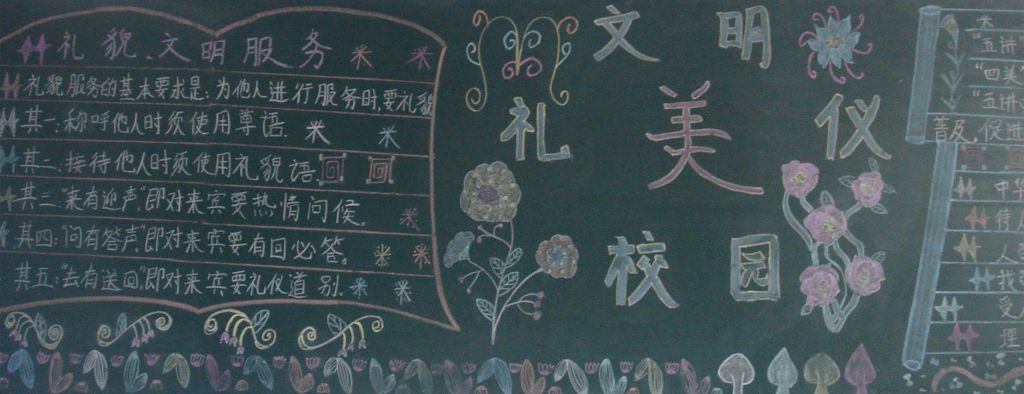 礼貌、文明服务
礼貌服务的基本要求是:为他人进行服务时,要礼貌
其一:称呼他人时须使用尊语.
其二:接待他人时须使用礼貌语.
其三:"来有迎声",即对来宾要热情问候.
其四:"问有答声",即对来宾要有回必答.
其五:"去有送回",即对来宾要礼仪道别.
文明
礼美仪
校园
"五讲
"四美
"五讲
普及、促进
中华
待人
人
我
受人
理